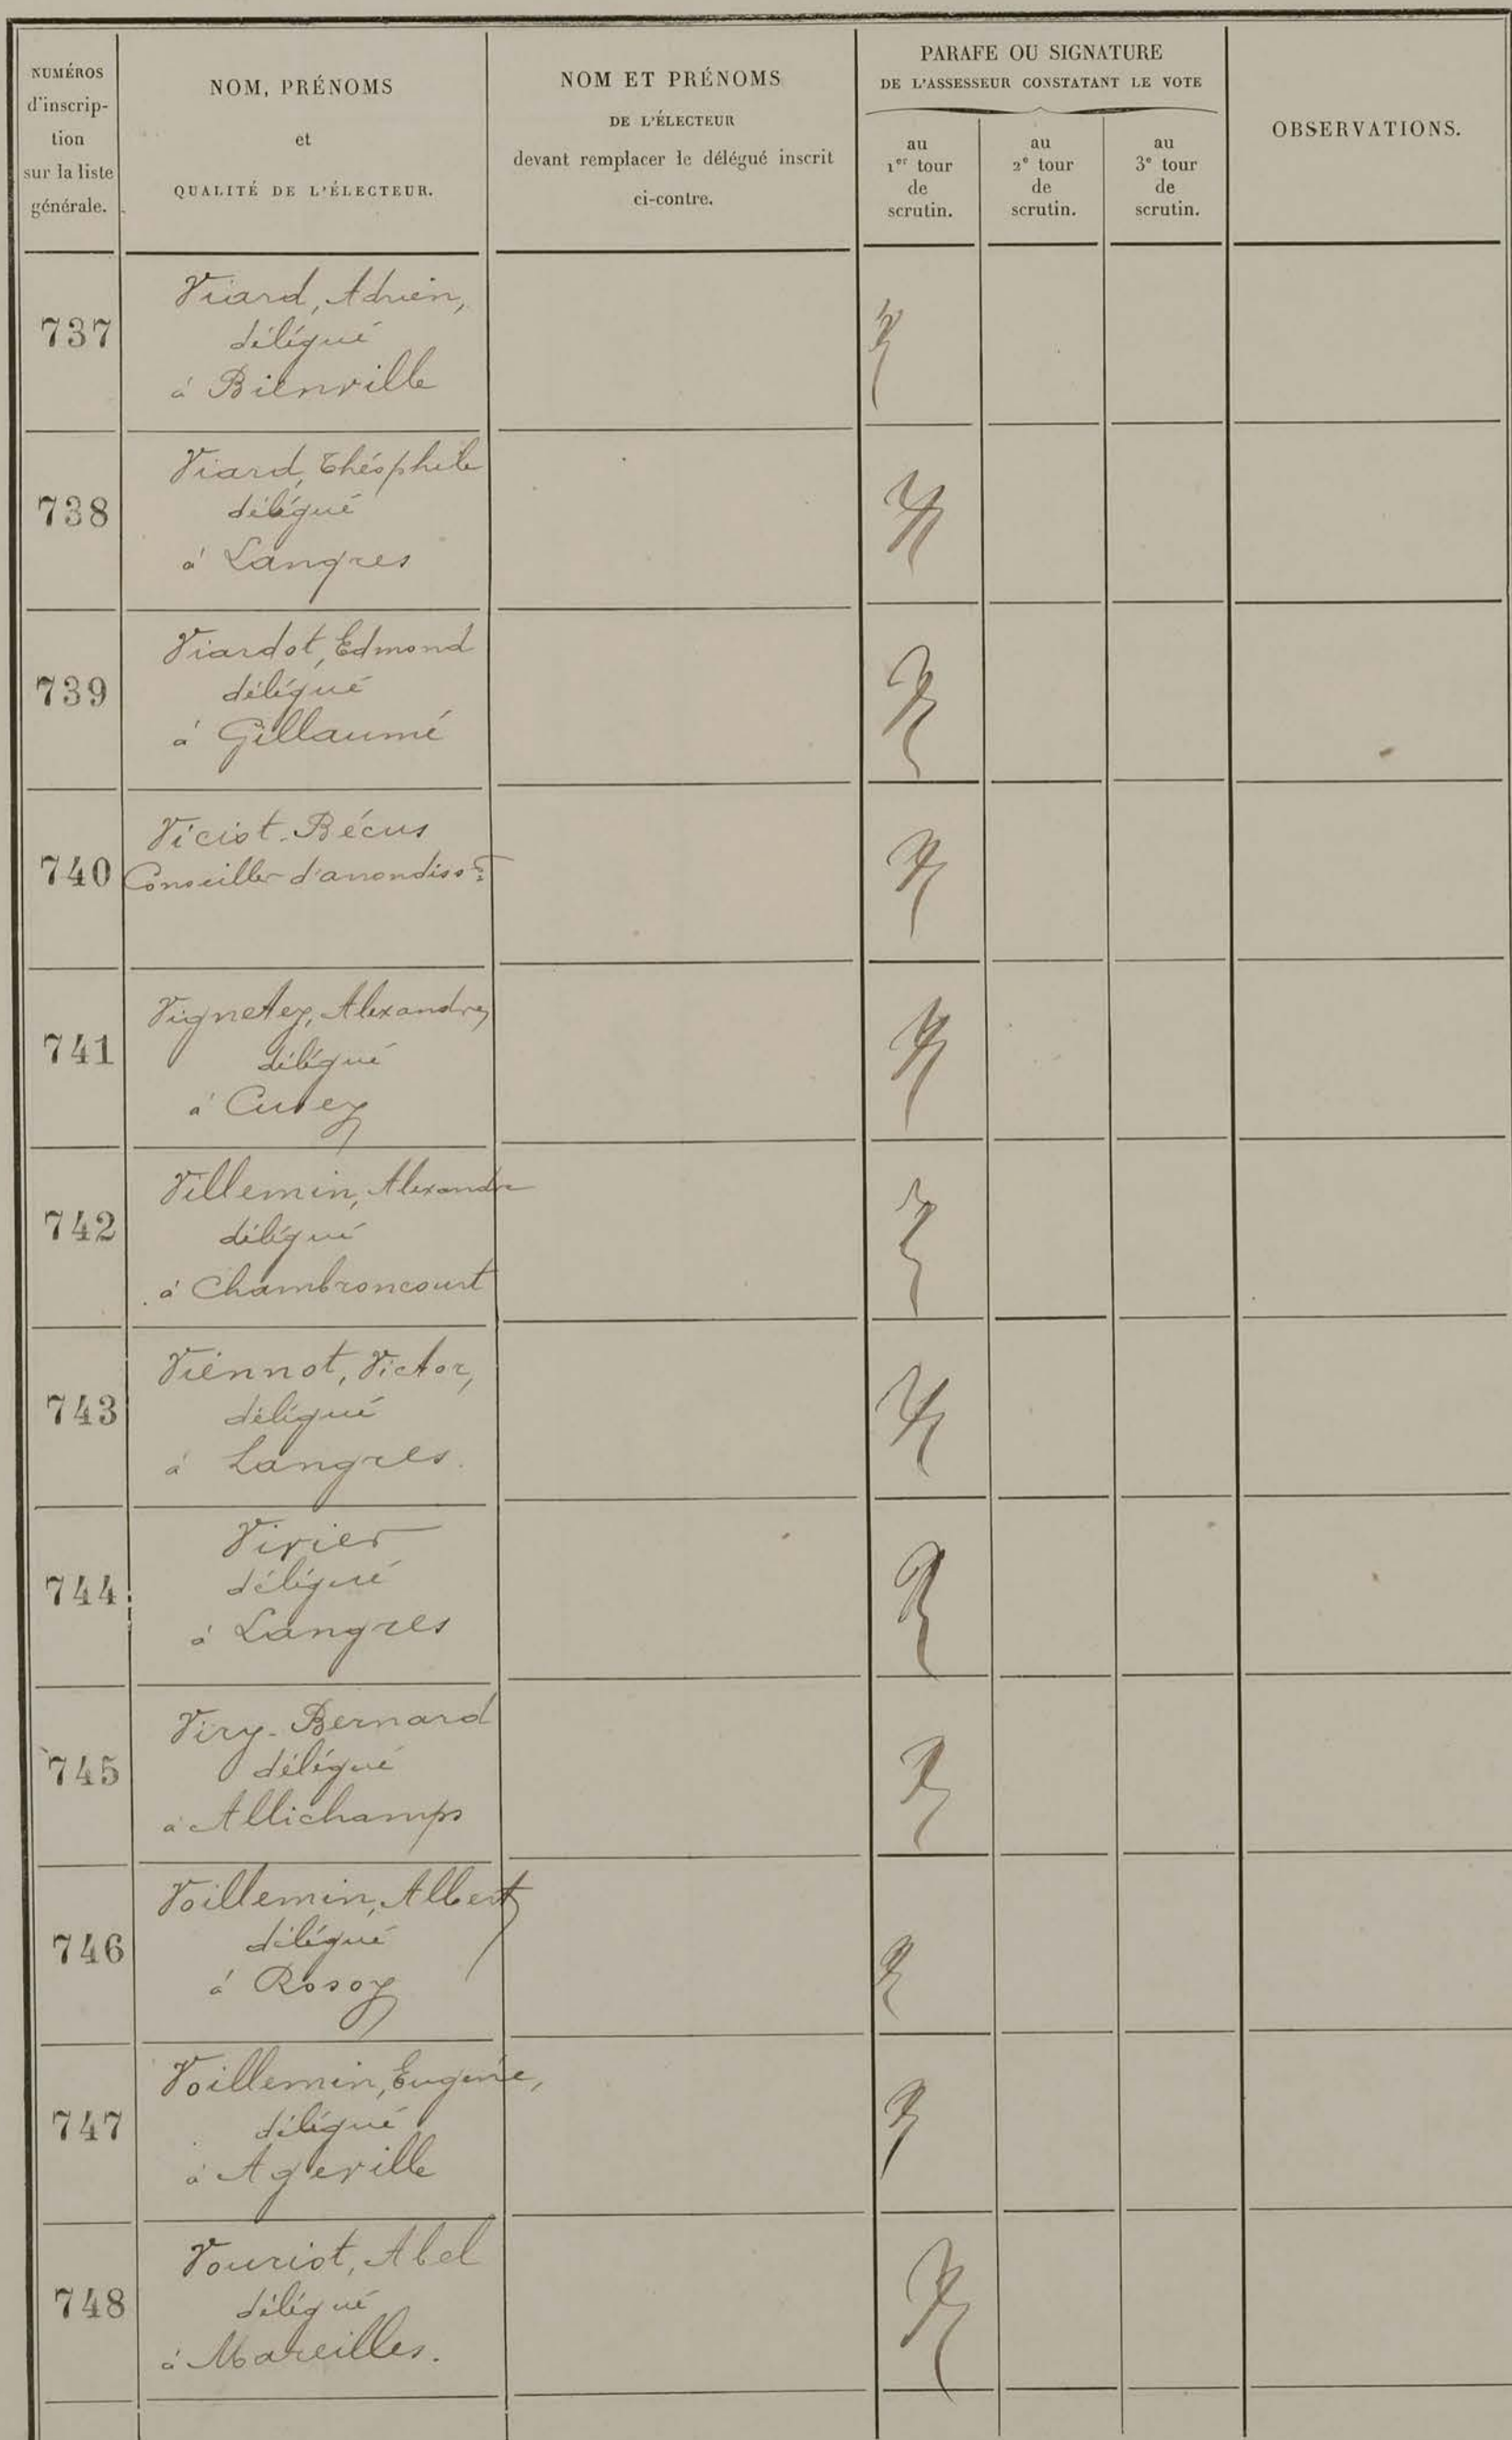 NUMÉROS
d'inscrip-
tion
sur la liste
générale.
NOM, PRÉNOMS
et
QUALITÉ DE L'ÉLECTEUR.
NOM ET PRÉNOMS
DE L'ÉLECTEUR
devant remplacer le délégué inscrit
ci-contre.
PARAFE OU SIGNATURE
DE L'ASSESSEUR CONSTATANT LE VOTE
au
1er tour
de
scrutin.
au
2e tour
de
scrutin.
au
3e tour
de
scrutin.
OBSERVATIONS.
737
Viard, Adrien,
délégué
à Bienville
738
Viard, Théophile
délégué
à Langres
739
Viardot, Edmond
délégué
à Gillaumé
740
Viciot-Bécus
Conseiller d'arrondisst
741
Vignetey, Alexandre,
délégué
à Cusey
742
Villemin, Alexandre
délégué
à Chambroncourt
743
Viennot, Victor,
délégué
à Langres.
744
Vivier
délégué
à Langres
745
Viry-Bernard
délégué
à Allichamps
746
Voillemin, Albert
délégué
à Rosoy
747
Voillemin, Eugène,
délégué
à Ageville
748
Vouriot, Abel
délégué
à Mareilles.